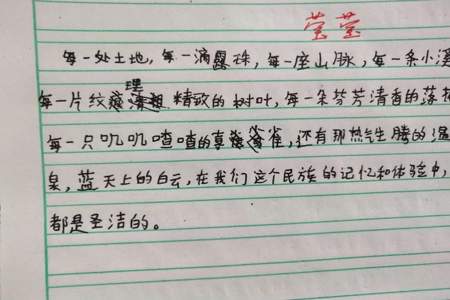 莹莹
每一处土地，每一滴露珠，每一座山脉，每一条小溪
每一片纹理精致的树叶，每一朵芬芳清香的落花
每一只叽叽喳喳的雀，还有那热气腾腾的温
泉，蓝天上的白云，在我们这个民族的记忆和体验中，
都是圣洁的。